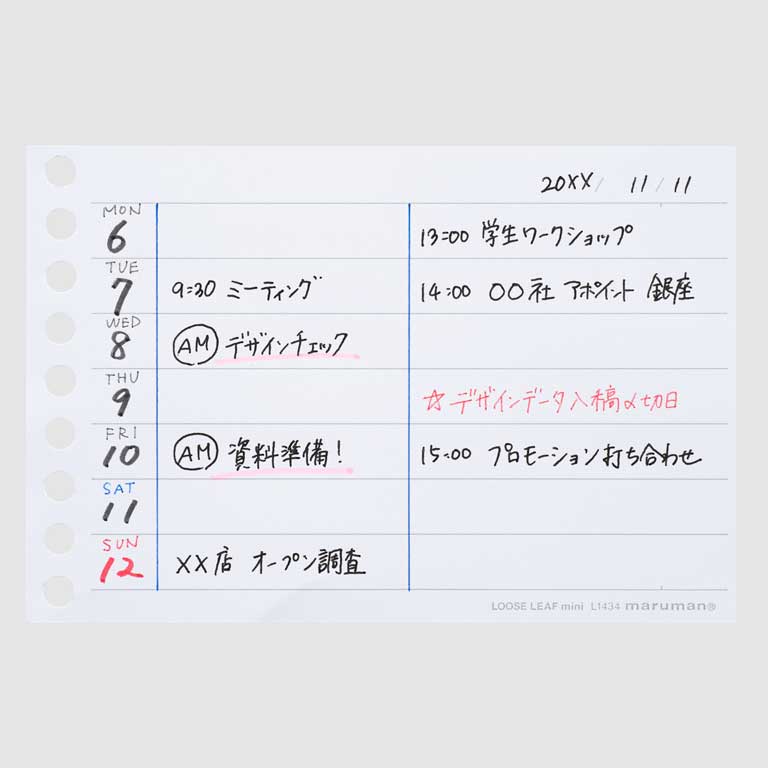 20XX/ 11/11
MON
6 13:00 学生ワークショップ
TUE
7 9:30 ミーティング 14:00 〇〇社 アポイント 銀座
WED
8 AM デザインチェック
THU
9 ☆デザインデータ入稿〆切日
FRI
10 AM 資料準備! 15:00 プロモーション打ち合わせ
SAT
11
SUN
12 XX店 オープン調査
LOOSE LEAF mini L1434 maruman®